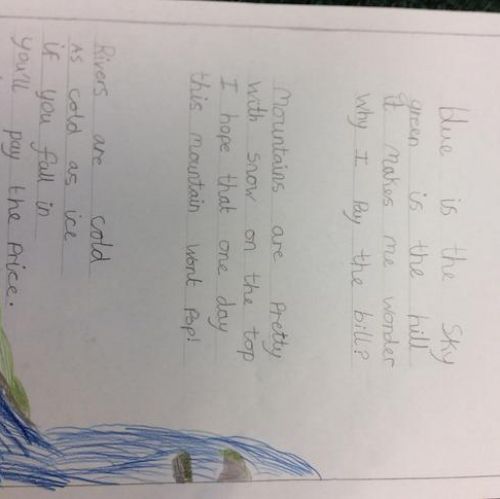 blue is the sky
green is the hill
it makes me wonder
why I pay the bill?
Mountains are pretty
with snow on the top
I hope that one day
this mountain wont pop!
Rivers are cold
As cold as ice
if you fall in
you'll pay the price.